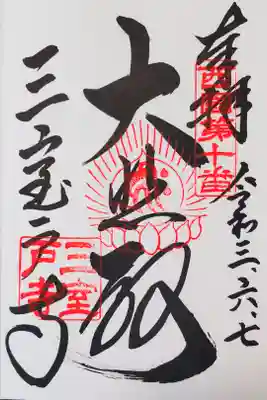 奉拝
西国第十番
令和三、六、七
大悲殿
三室戸寺
三室
戸寺